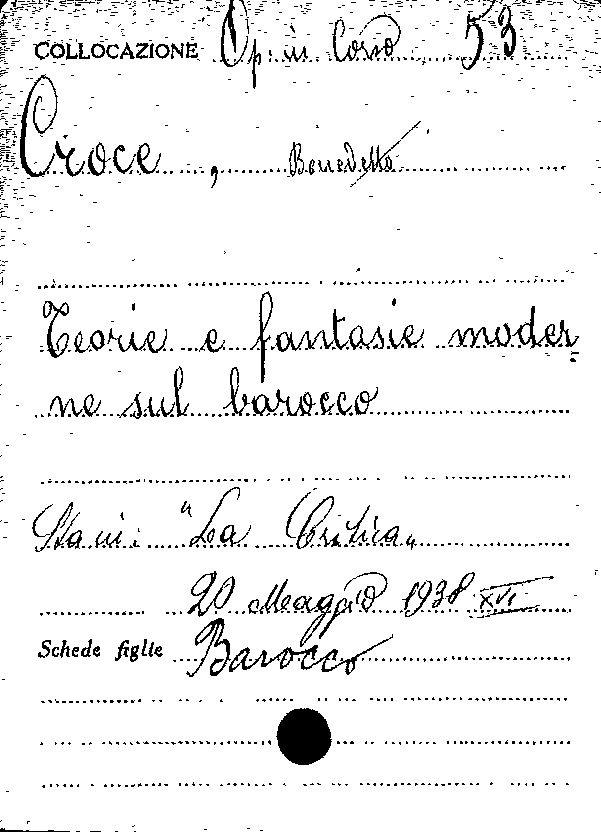 COLLOCAZIONE Op. in Corso 53
Croce, Benedetto
Teorie e fantasie moder-
ne sul barocco
Sta in: "La Critica"
20 Maggio 1938 XVI
Schede figlie Barocco